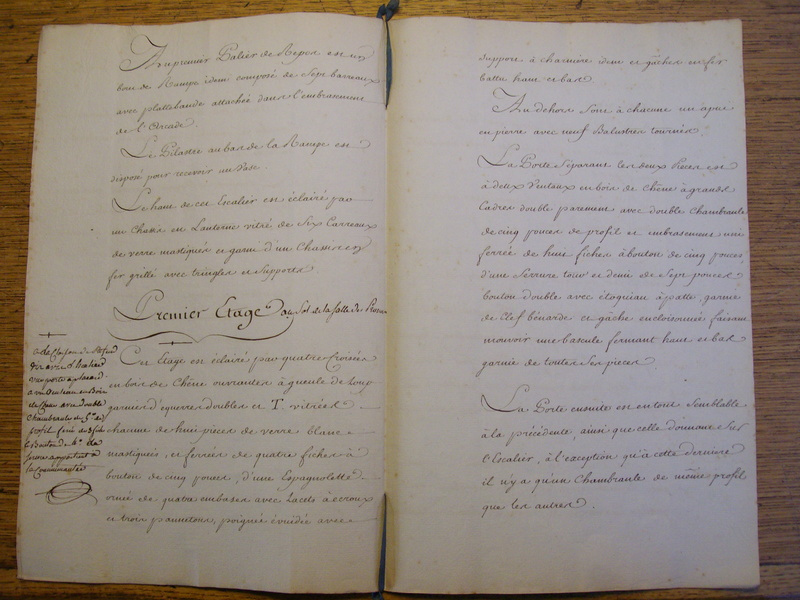 Au premier Palier de Repos est un
bout de Rampe idem composé de Sept barreaux
avec plattebande attachée dans l'embrasement
de l'Arcade.
Le Pilastre au bas de la Rampe est
disposé pour recevoir un Vase.
Le haut de cet Escalier est éclairé par
un Chassis en Lanterne vitré de Six Carreaux
de verre mastiqués et garni d'un Chassis en
fer grillé avec tringles et Supports
Premier Etage au Sol de la Salle des
Cet Etage est éclairé par quatre Croisées
en bois de Chêne ouvrantes à gueule de Loup
garnies d'equerres doubles et T. vitrées
chacune de huit pièces de verre blanc
mastiquées, et ferrées de quatre fiches à
bouton de cinq pouces, d'une Espagnolette
ornée de quatre embases avec Lacets à écroux
et trois pannetons, poignée évuidée avec
de Cloison
avec
une porte
à un Venteau en Bois
de Chêne avec double
Chambranle de 5 de
profil ferré de 3 fiches
à Bouton de
appartient à
la Communauté
support à charnière idem et gâches en fer
battu haut et bas.
Au dehors sont à chacune un apui
en pierre avec neuf Balustres tournés.
La Porte Séparant les deux Pièces est
à deux Venteaux en bois de chêne à grands
Cadres double parement avec double Chambranle
de cinq pouces de profil et embrasement uni
ferrée de huit fiches à bouton de cinq pouces
d'une Serrure tour et demi de Sept pouces
bouton double avec étoquiau à patte, garnie
de Clef bénarde et gâche encloisonnée faisant
mouvoir une bascule fermant haut et bas
garnie de toutes Ses pièces
La Porte ensuite est en tout Semblable
à la précédente, ainsi que celle donnant Sur
l'Escalier, à l'exception qu'à cette dernière
il n'y a qu'un Chambranle de même profil
que les autres.